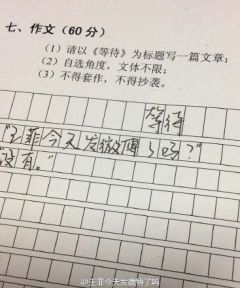 七、作文(60分)
(1)请以《等待》为标题写一篇文章;
(2)自选角度,文体不限;
(3)不得套作,不得抄袭。
等待
"王菲今天发微博了吗?"
"没有。"
@王菲今天发微博了吗